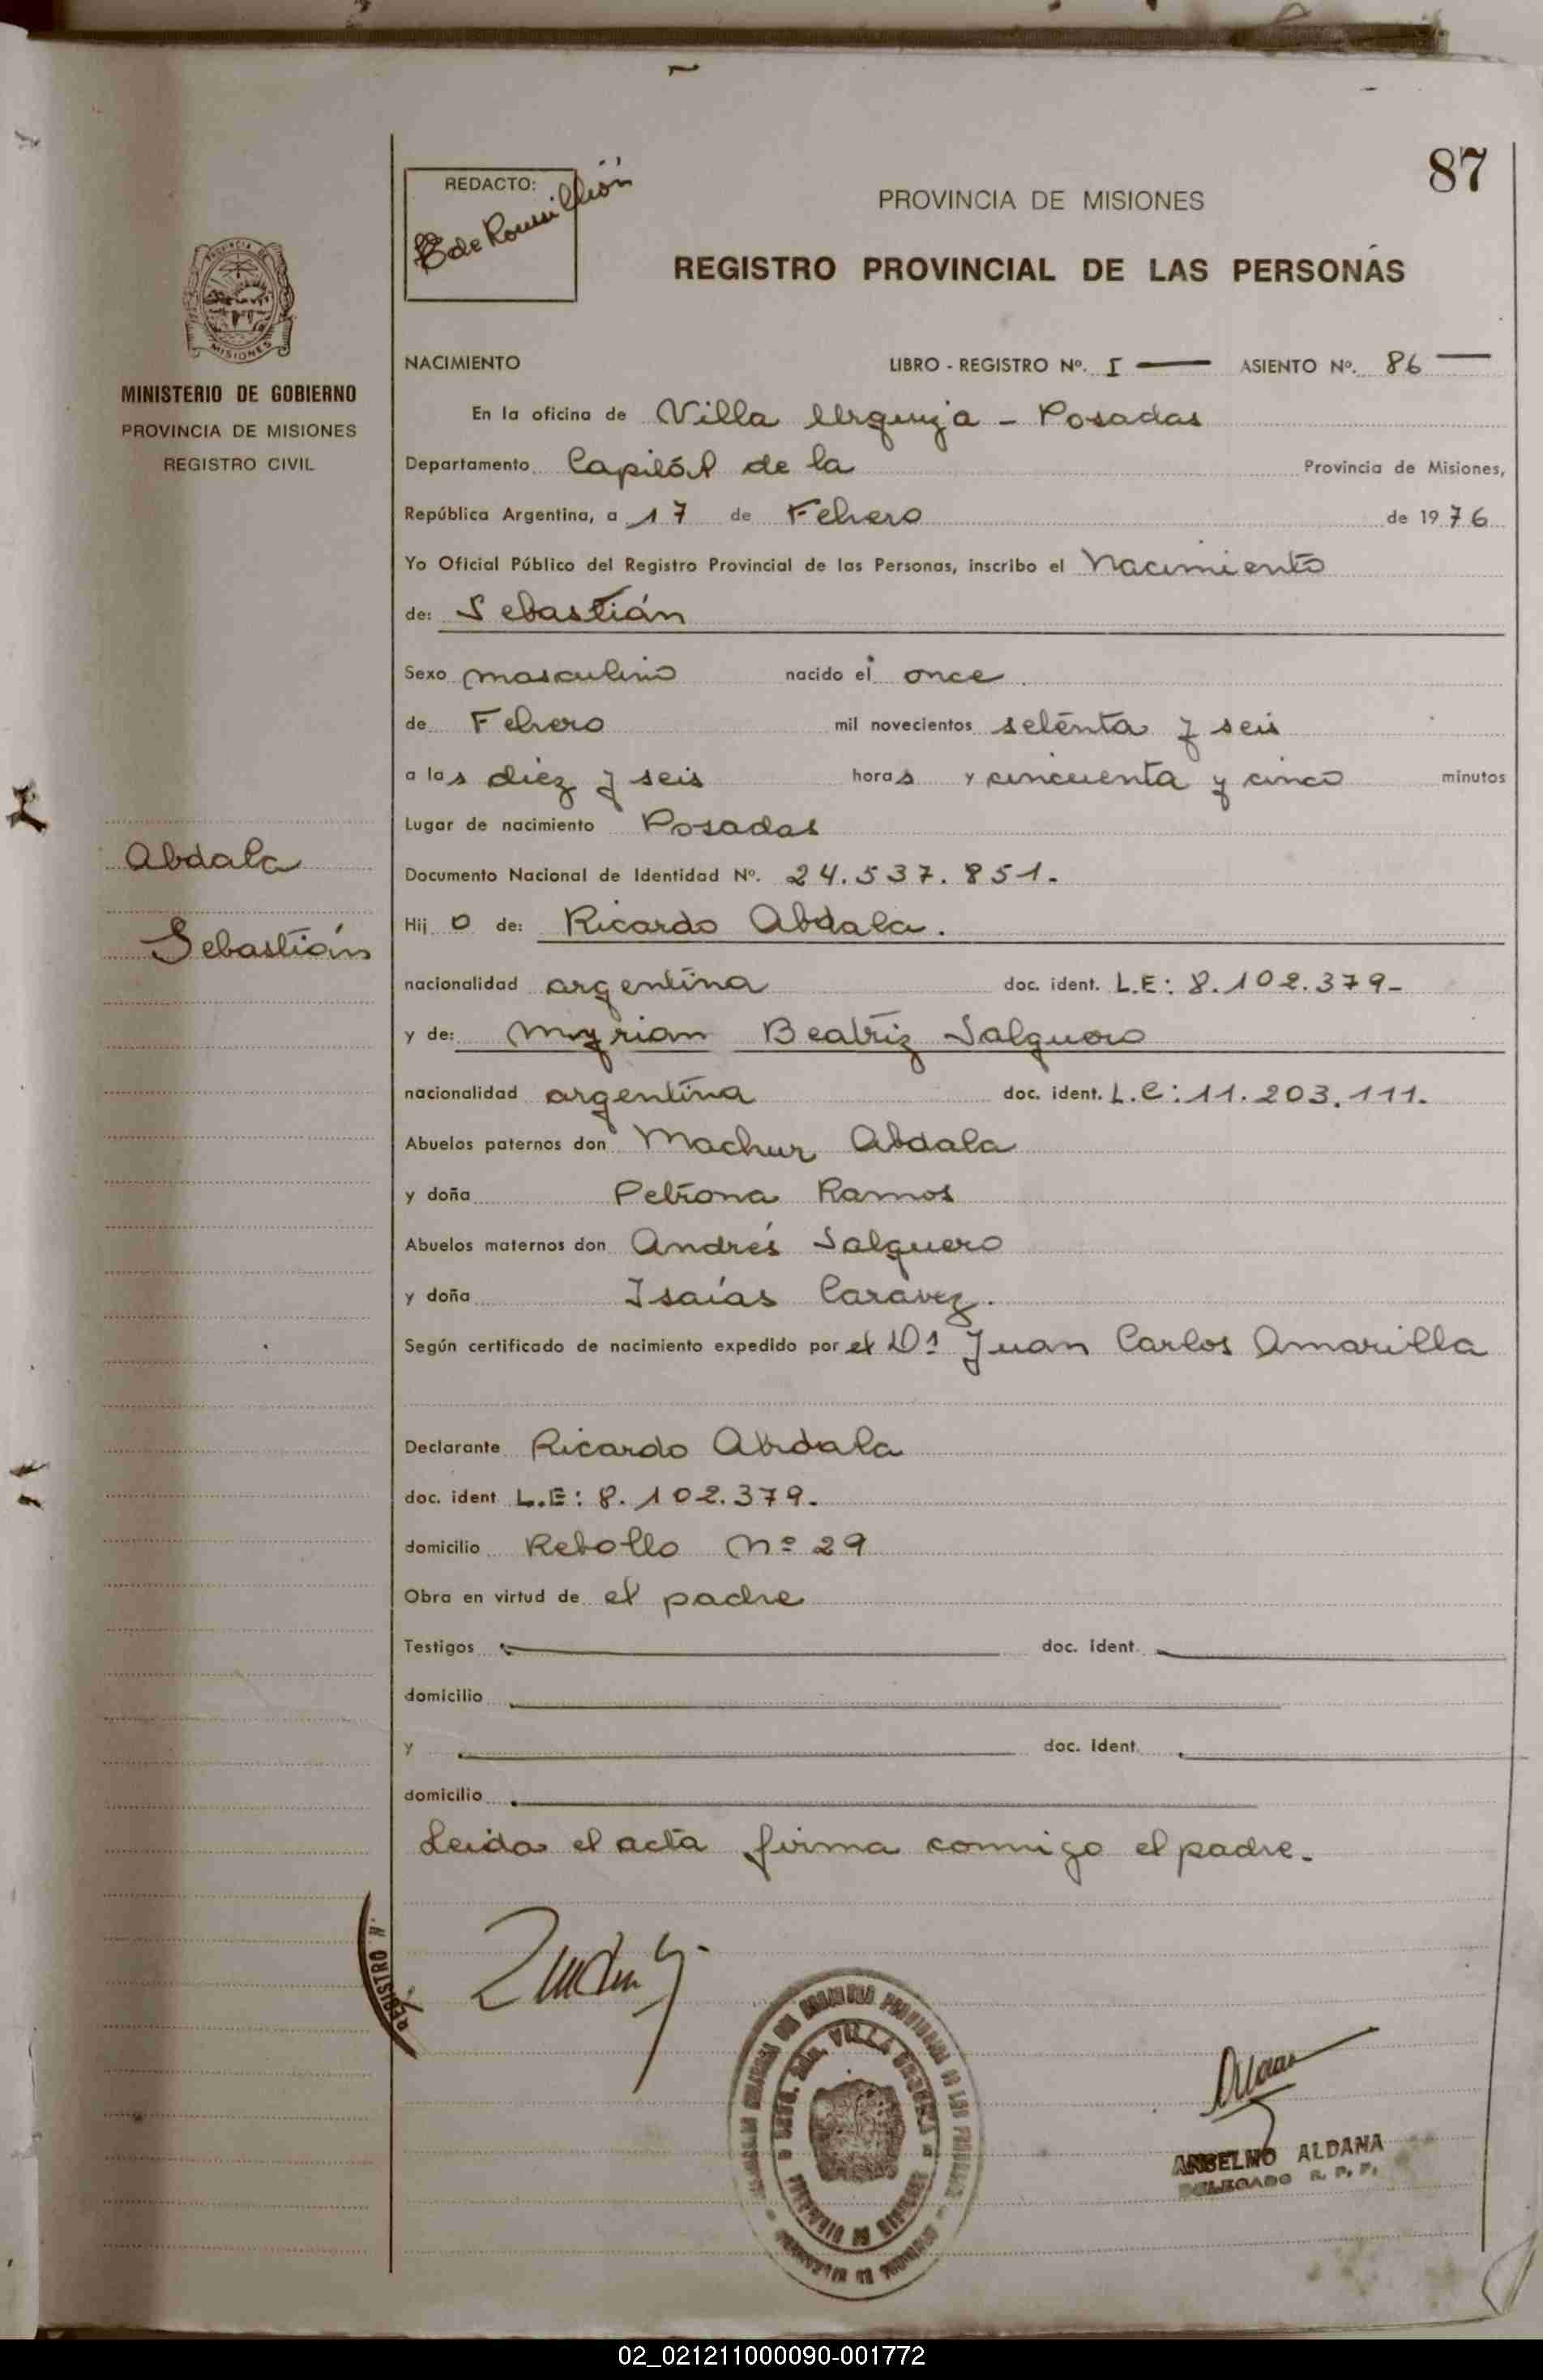 87
REDACTO:
PROVINCIA DE MISIONES
REGISTRO PROVINCIAL DE LAS PERSONAS
PROVINCIA DE
MISIONES
MINISTERIO DE GOBIERNO
PROVINCIA DE MISIONES
REGISTRO CIVIL
NACIMIENTO LIBRO - REGISTRO Nº. I — ASIENTO Nº. 86 —
En la oficina de Villa Urquiza - Posadas
Departamento Capitál de la Provincia de Misiones,
República Argentina, a 17 de Febrero de 1976
Yo Oficial Público del Registro Provincial de las Personas, inscribo el Nacimiento
de: Sebastián
Sexo masculino nacido el once
de Febrero mil novecientos setenta y seis
a las diez y seis horas y cincuenta y cinco minutos
Lugar de nacimiento Posadas
Abdala
Sebastián
Documento Nacional de Identidad Nº. 24.537.851.
Hijo de: Ricardo Abdala.
nacionalidad argentina doc. ident. L.E: 8.102.379-
y de: Myrian Beatriz Salguero
nacionalidad argentina doc. ident. L.C: 11.203.111.
Abuelos paternos don Machur Abdala
y doña Petrona Ramos
Abuelos maternos don Andrés Salguero
y doña Isaías Caravez.
Según certificado de nacimiento expedido por el Dr Juan Carlos Amarilla
Declarante Ricardo Abdala
doc. ident L.E: 8.102.379.
domicilio Rebollo Nº 29
Obra en virtud de el padre
Testigos doc. ident.
domicilio
y doc. ident.
domicilio
Leida el acta firma conmigo el padre.
REGISTRO Nº
VILLA URQUIZA
ANSELMO ALDANA
DELEGADO R. P. P.
02_021211000090-001772